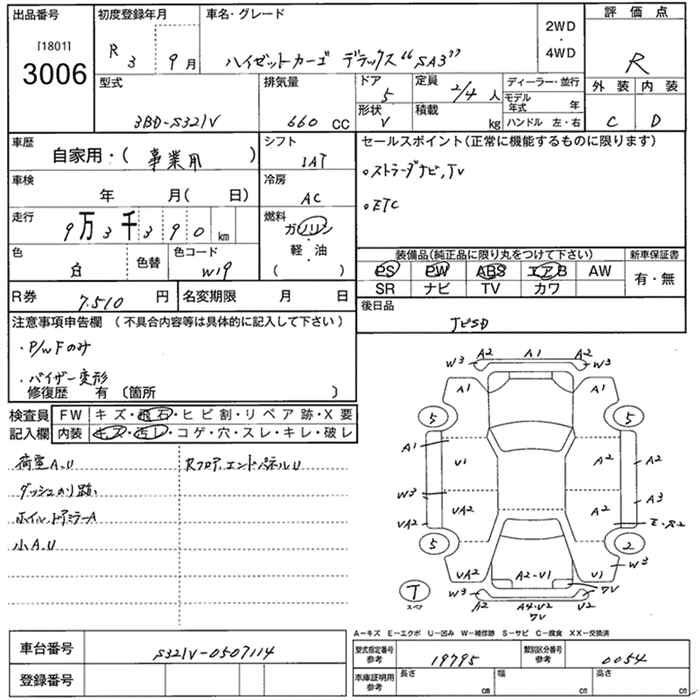 出品番号
[1801]
3006
初度登録年月
R 3 9月
車名・グレード
ハイゼットカーゴ デラックス"SA3"
2WD
・
4WD
評価点
R
型式
3BD-S321V
排気量
660 CC
ドア
5
定員
2/4 人
形状
V
積載
kg
ディーラー・並行
モデル年式 年
ハンドル 左・右
外装
C
内装
D
車歴
自家用・( 事業用 )
シフト
IAT
セールスポイント(正常に機能するものに限ります)
。ストラーダナビ,TV
。ETC
車検
年 月( 日)
冷房
AC
走行
9万3千390 km
燃料
ガソリン
・
軽・油
( )
色
白
色替
色コード
W19
装備品(純正品に限り丸をつけて下さい)
PS PW ABS エアB AW
SR ナビ TV カワ
新車保証書
有・無
R券
7.510 円
名変期限 月 日
後日品
注意事項申告欄 (不具合内容等は具体的に記入して下さい)
・P/WFのみ
・バイザー変形
修復歴 有 (箇所 )
検査員
記入欄
FW キズ・飛石・ヒビ割・リペア跡・X要
内装 キズ・汚レ・コゲ・穴・スレ・キレ・破レ
荷室A.U
RフロアエンドパネルU
ダッシュのり跡
ホイル、ドアミラーA
小A.U
W3 A2 A1 A2 W3
A1 A1
5 5
A1 U1 A2 A2
W3 A3
UA2 UA2 A2 E・S2
5 2
UA2 A2-U1 U1 W3
T
スペア
W3 7V
A2 A4・V2 U2
7V
A―キズ E―エクボ U―凹み W―補修跡 S―サビ C―腐食 XX―交換済
車台番号
S321V-0507114
登録番号
型式指定番号
参考
19795
類別区分番号
参考
0054
車庫証明用
参考
長さ cm
幅 cm
高さ cm